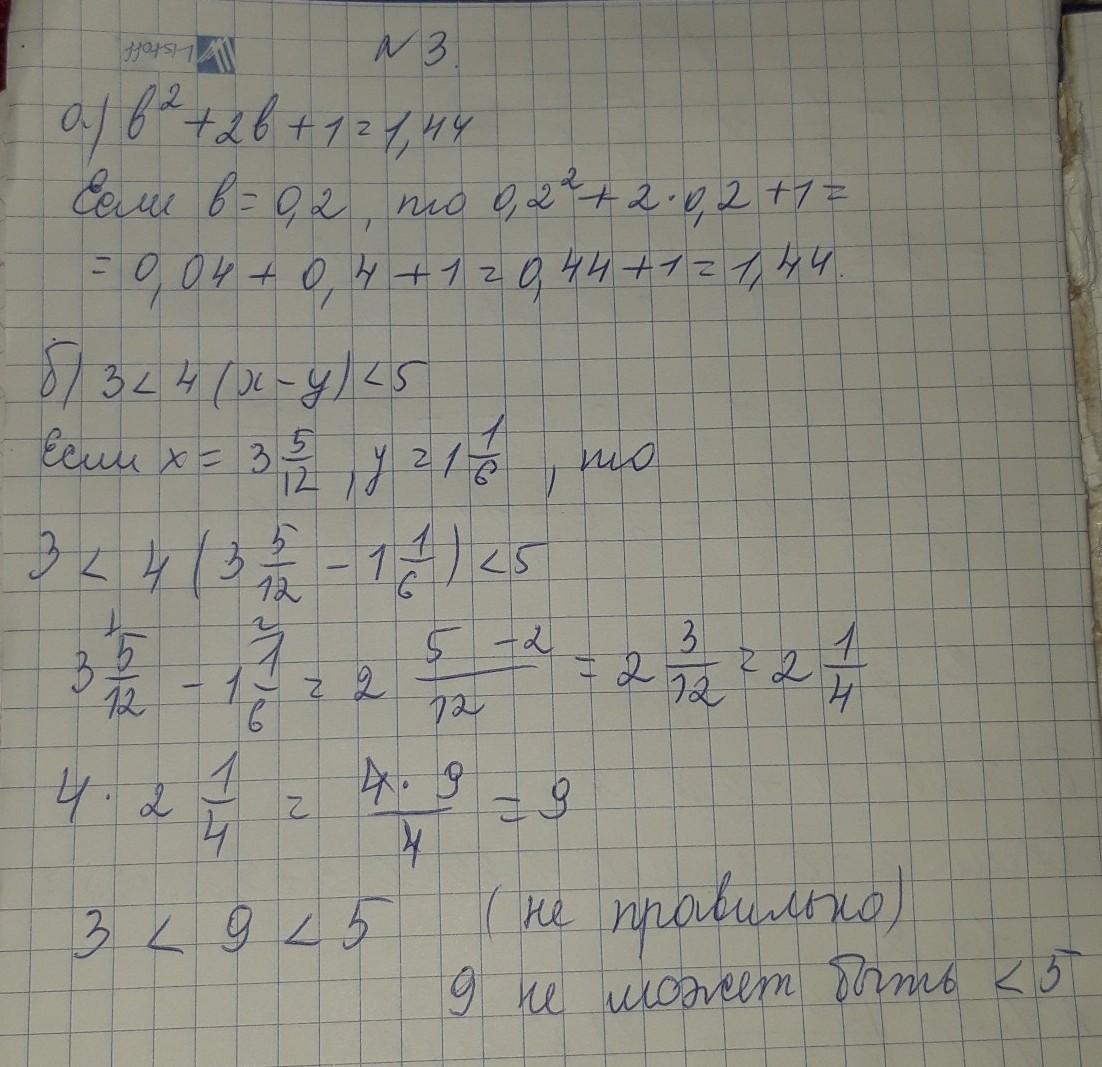 Listoff
N 3.
а) b² + 2b + 1 = 1,44
Если b = 0,2, то 0,2² + 2·0,2 + 1 =
= 0,04 + 0,4 + 1 = 0,44 + 1 = 1,44.
б) 3 < 4 (x - y) < 5
Если x = 3 5/12, y = 1 1/6, то
3 < 4 (3 5/12 - 1 1/6) < 5
3 5/12 - 1 1/6 = 2 (5 - 2)/12 = 2 3/12 = 2 1/4
4 · 2 1/4 = (4 · 9)/4 = 9
3 < 9 < 5 (не правильно)
9 не может быть < 5